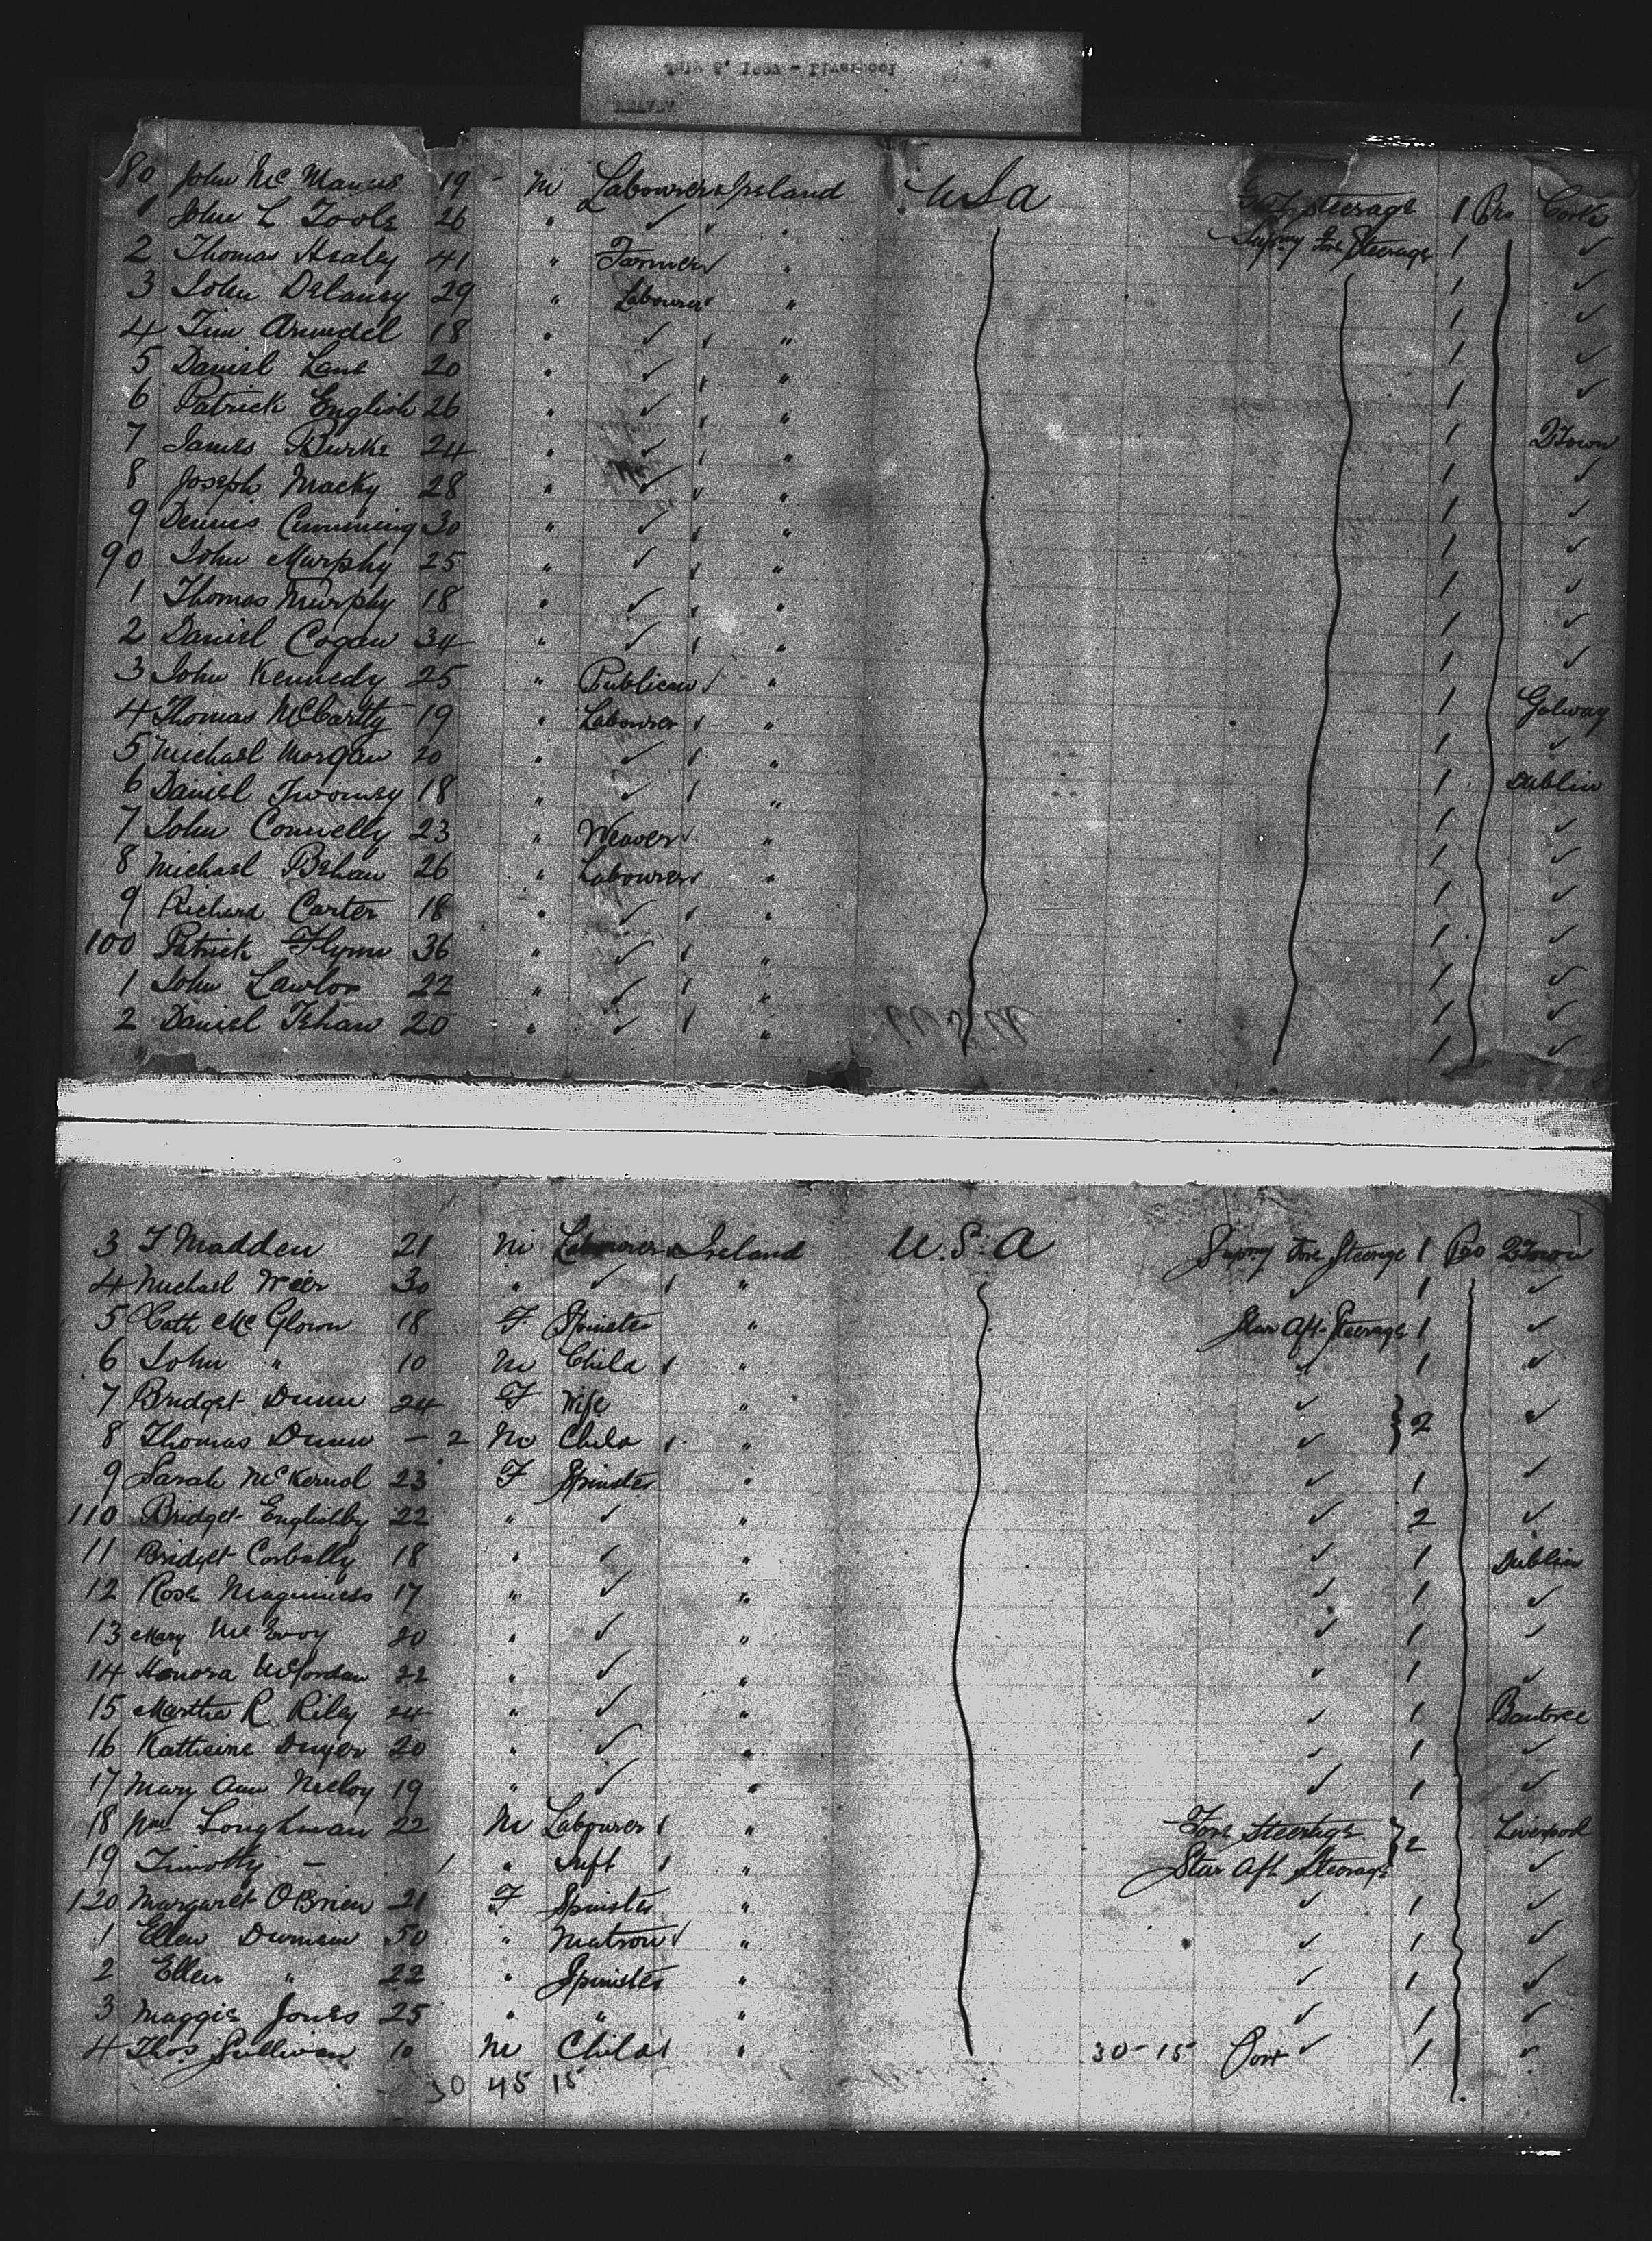 80 John McManus 19 - M Labourer Ireland USA Steerage 1 Pro Cork
1 John L Toole 26 " ✓ " Steerage 1 ✓
2 Thomas Healey 41 " Farmer " 1 ✓
3 John Delaney 29 " Labourer " 1 ✓
4 Tim Arundel 18 " ✓ " 1 ✓
5 Daniel Lane 20 " ✓ " 1 ✓
6 Patrick English 26 " ✓ " 1
7 James Burke 24 " ✓ " 1 QTown
8 Joseph Macky 28 " ✓ " 1 ✓
9 Dennis Cumming 30 " ✓ " 1 ✓
90 John Murphy 25 " ✓ " 1 ✓
1 Thomas Murphy 18 " ✓ " 1 ✓
2 Daniel Cogan 34 " ✓ " 1 ✓
3 John Kennedy 25 " Publican " 1 ✓
4 Thomas McCartty 19 " Labourer " 1 Galway
5 Michael Morgan 20 " ✓ " 1 ✓
6 Daniel Twomey 18 " ✓ " 1 Dublin
7 John Connelly 23 " Weaver " 1 ✓
8 Michael Behan 26 " Labourer " 1 ✓
9 Richard Carter 18 " ✓ " 1 ✓
100 Patrick Flynn 36 " ✓ " 1 ✓
1 John Lawlor 22 " ✓ " 1 ✓
2 Daniel 20 " ✓ " 1 ✓
3 T Madden 21 M Labourer Ireland U.S.A Fore Steerage 1 Pro QTown
4 Michael Weir 30 " ✓ " ✓ 1 ✓
5 Cath McGlown 18 F Spinster " Star Aft Steerage 1 ✓
6 John " 10 M Child " ✓ 1 ✓
7 Bridget Dunn 24 F Wife " ✓ } 2 ✓
8 Thomas Dunn - 2 M Child " ✓
9 Sarah McKernol 23 F Spinster " ✓ 1 ✓
110 Bridget Englishby 22 " ✓ " ✓ 2 ✓
11 Bridget Corbally 18 " ✓ " ✓ 1 Dublin
12 Rose Maguiness 17 " ✓ " ✓ 1 ✓
13 Mary McEvoy 20 " ✓ " ✓ 1 ✓
14 Honora McJordan 22 " ✓ " ✓ 1 ✓
15 Martha R Riley 24 " ✓ " ✓ 1
16 Katherine Dwyer 20 " ✓ " ✓ 1 ✓
17 Mary Ann 19 " ✓ " ✓ 1 ✓
18 Wm Loughman 22 M Labourer " Fore Steerage } 2 Liverpool
19 Timothy - 1 " Inft " Star Aft Steerage ✓
120 Margaret OBrien 21 F Spinster " ✓ 1 ✓
1 Ellen 50 " Matron " ✓ 1 ✓
2 Ellen " 22 " Spinster " ✓ 1 ✓
3 Maggie Jones 25 " " " ✓ 1 ✓
4 Thos Sullivan 10 M Child " 30-15 Port ✓ 1 ✓
30 45 15